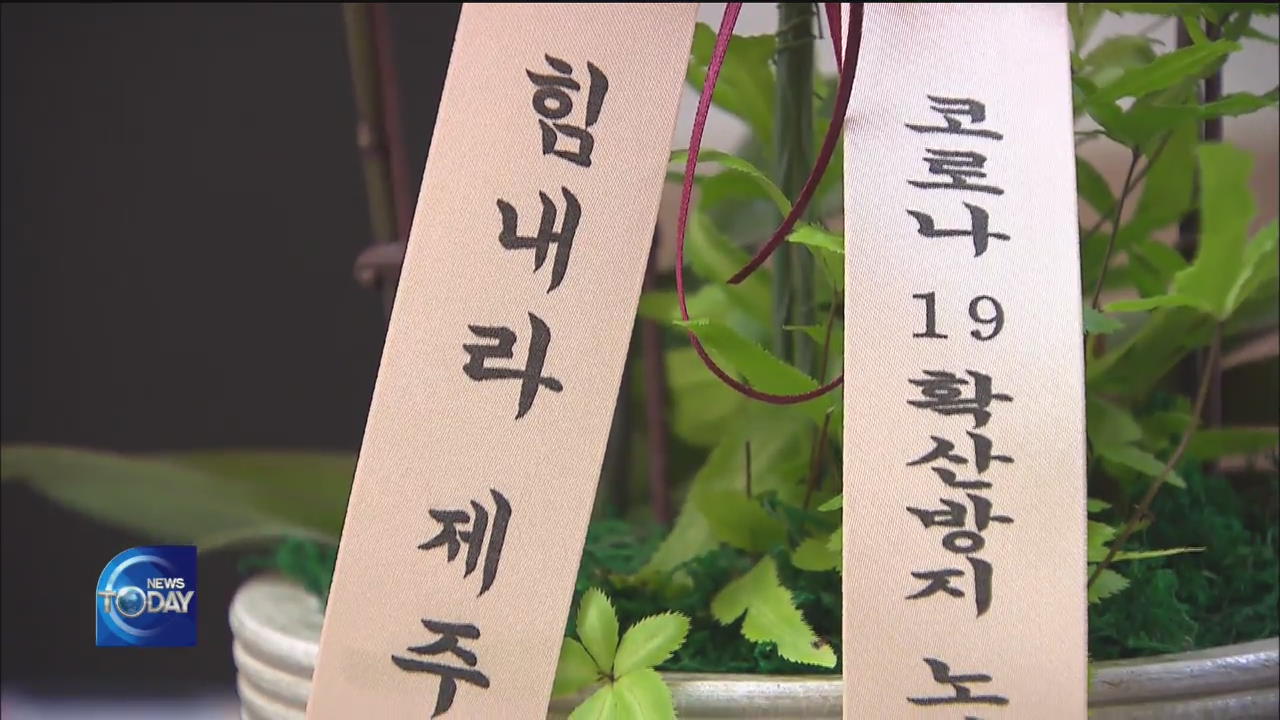 힘내라 제주
코로나 19 확산방지
NEWS
TODAY